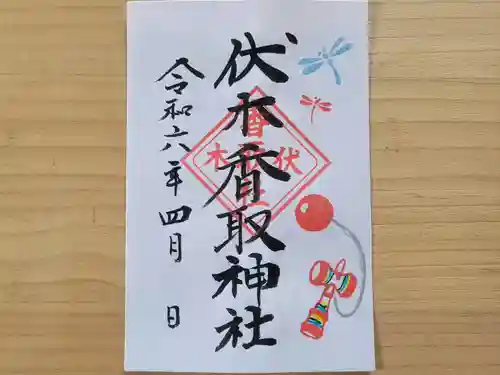 伏木香取神社
令和六年四月 日
伏木
香取